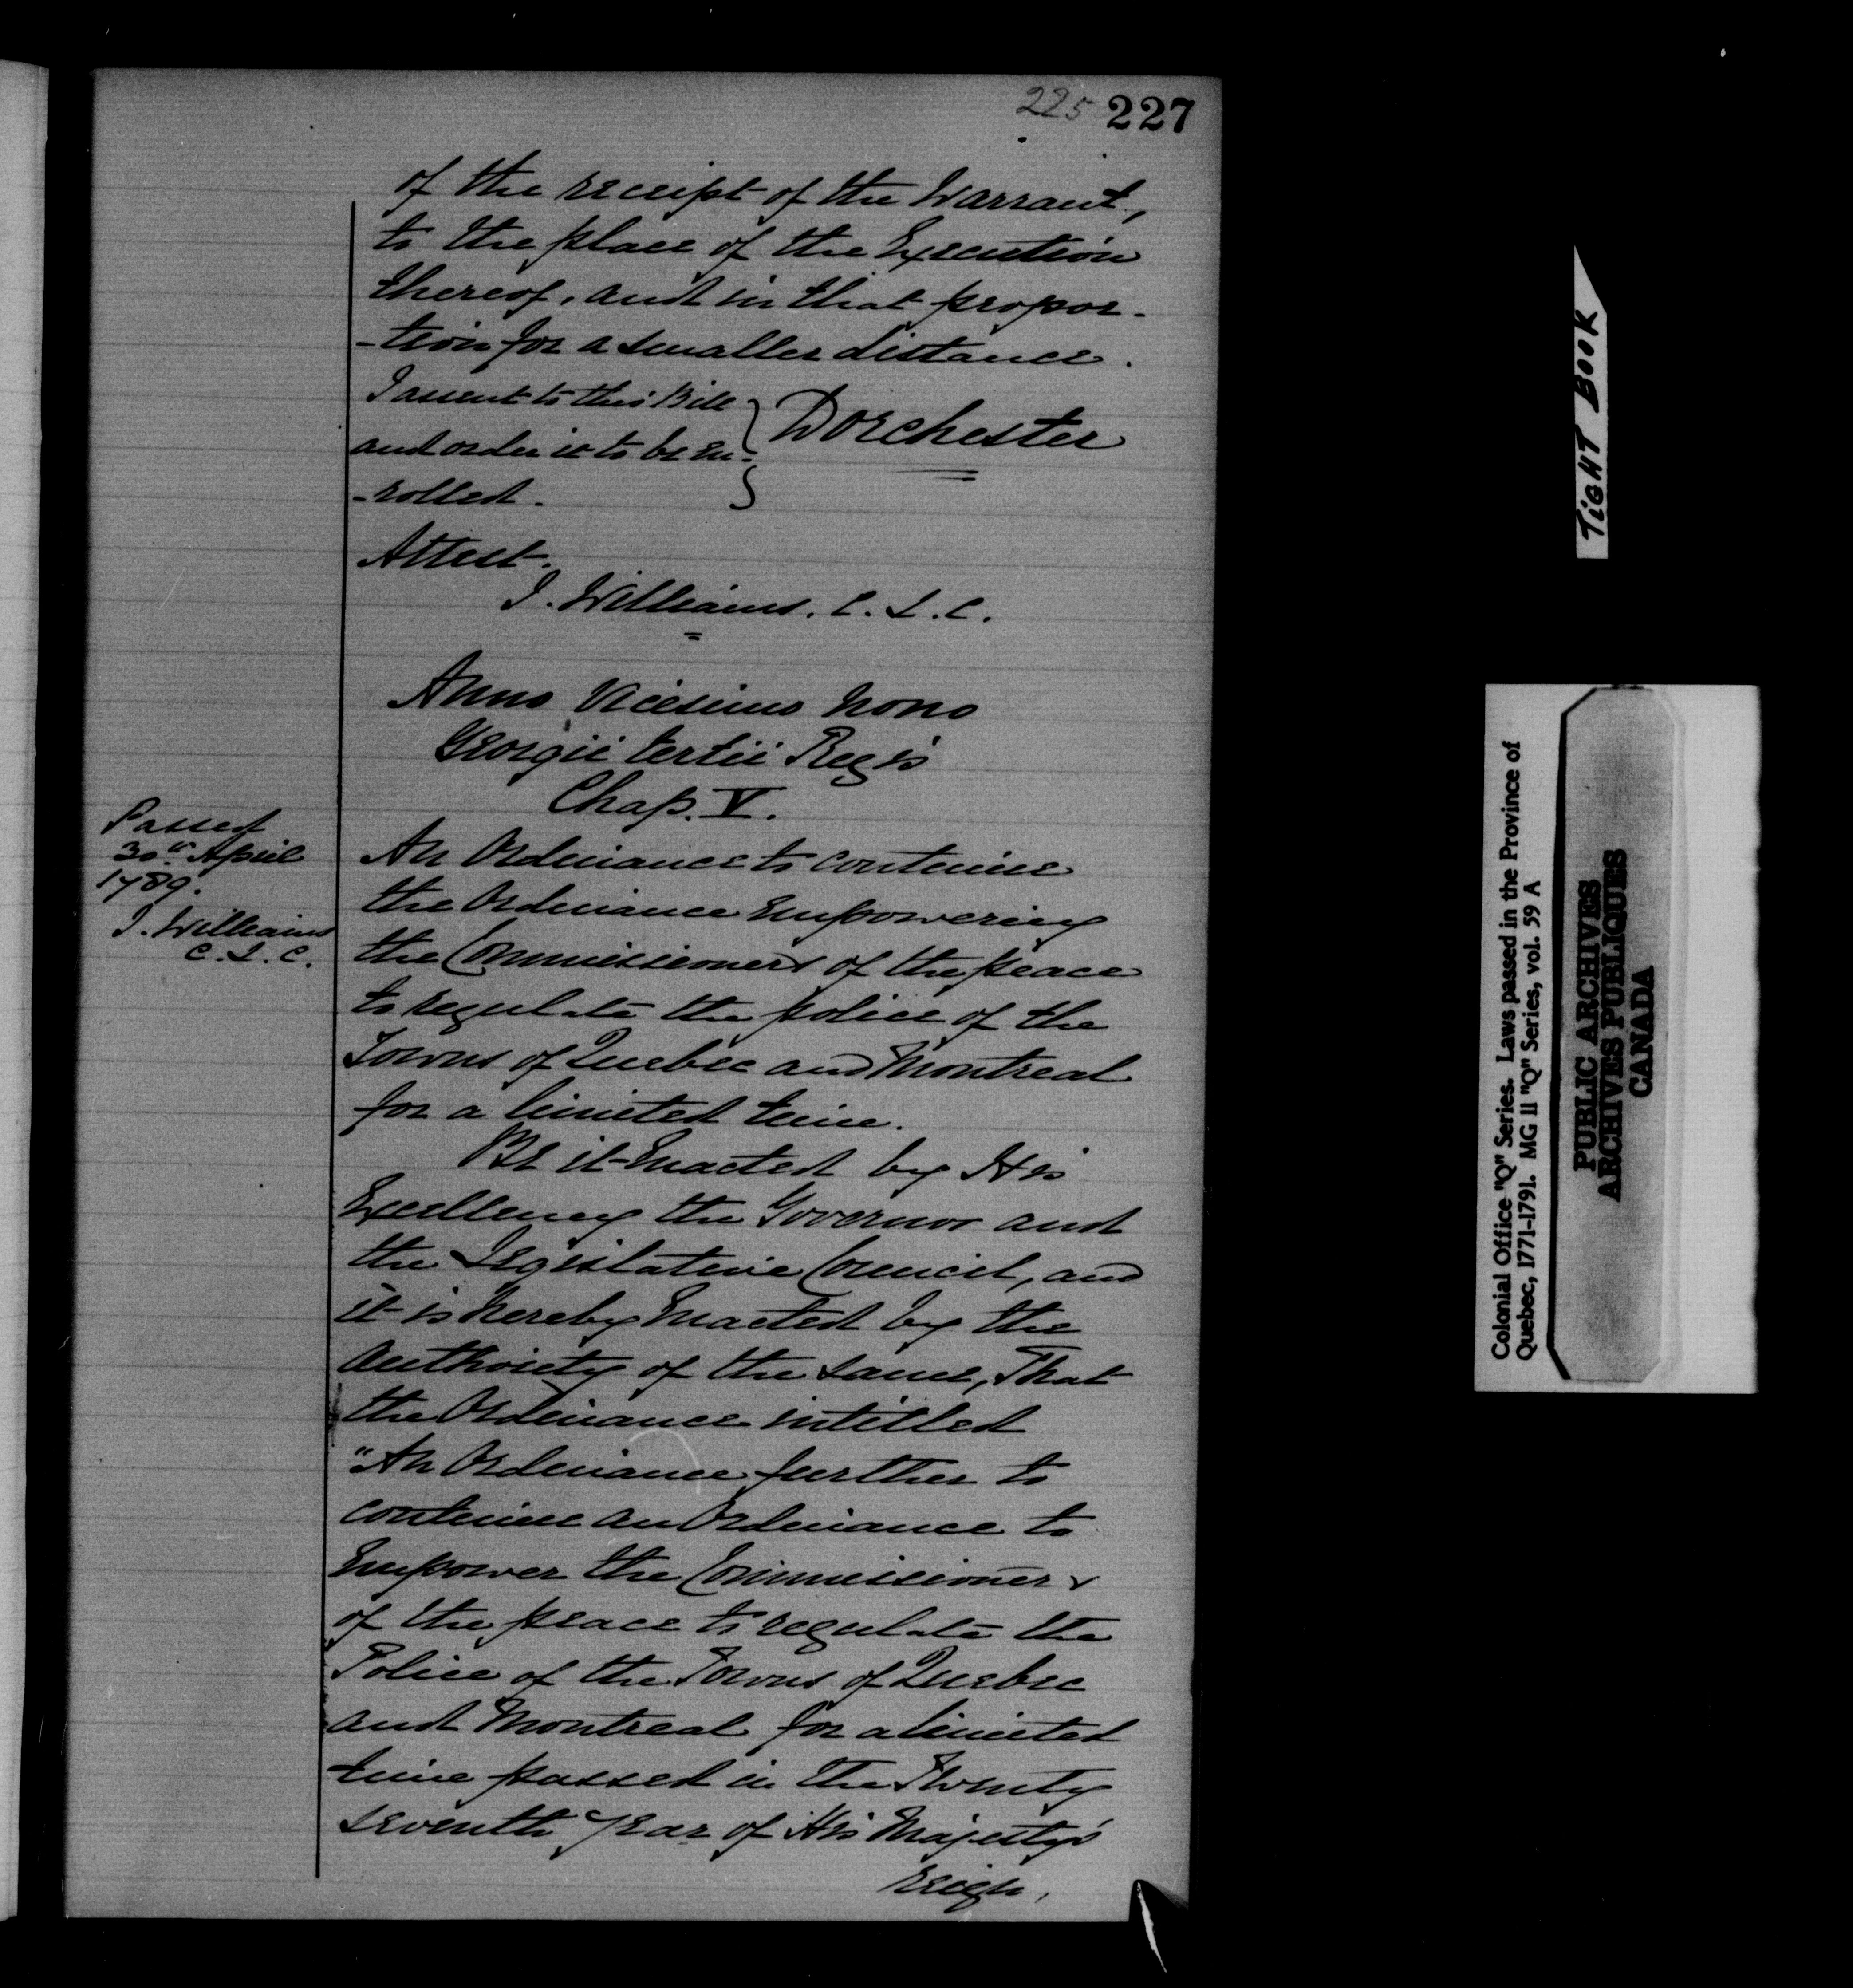 225 227
of the receipt of the Warrant,
to the place of the Execution
thereof, and in that propor-
-tion for a smaller distance.
I assent to this Bill
and order it to be En-
-rolled.
Dorchester
Attest.
J. Williams. C. L. C.
Anno Vicesimo Nono
Georgii tertii Regis
Chap. V.
Passed
30th April
1789.
J. Williams
C. L. C.
An Ordinance to continue
the Ordinance Empowering
the Commissioners of the peace
to regulate the police of the
Towns of Quebec and Montreal
for a limited time.
Be it Enacted by His
Excellency the Governor and
the Legislative Council, and
it is hereby Enacted by the
authority of the same, That
the Ordinance intitled
"An Ordinance further to
continue an Ordinance to
Empower the Commissioners
of the peace to regulate the
Police of the Towns of Quebec
and Montreal for a limited
time passed in the Twenty
seventh Year of His Majesty's
reign,
TIGHT BOOK
Colonial Office "Q" Series. Laws passed in the Province of
Quebec, 1771-1791. MG 11 "Q" Series, vol. 59 A
PUBLIC ARCHIVES
ARCHIVES PUBLIQUES
CANADA